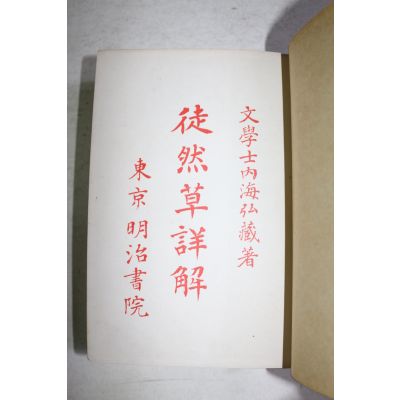 文學士內海弘藏著
徒然草詳解
東京 明治書院